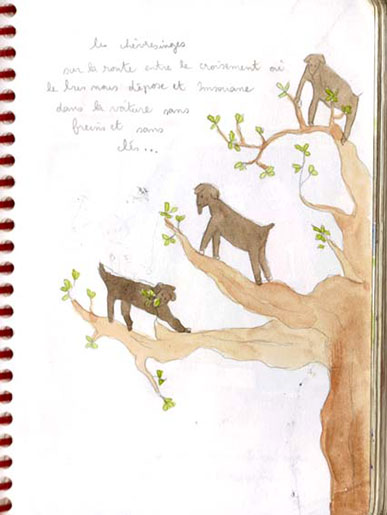 les chèvresinges
sur la route entre le croisement où
le bus nous dépose et Imsouane
dans la voiture sans
freins et sans
clés...